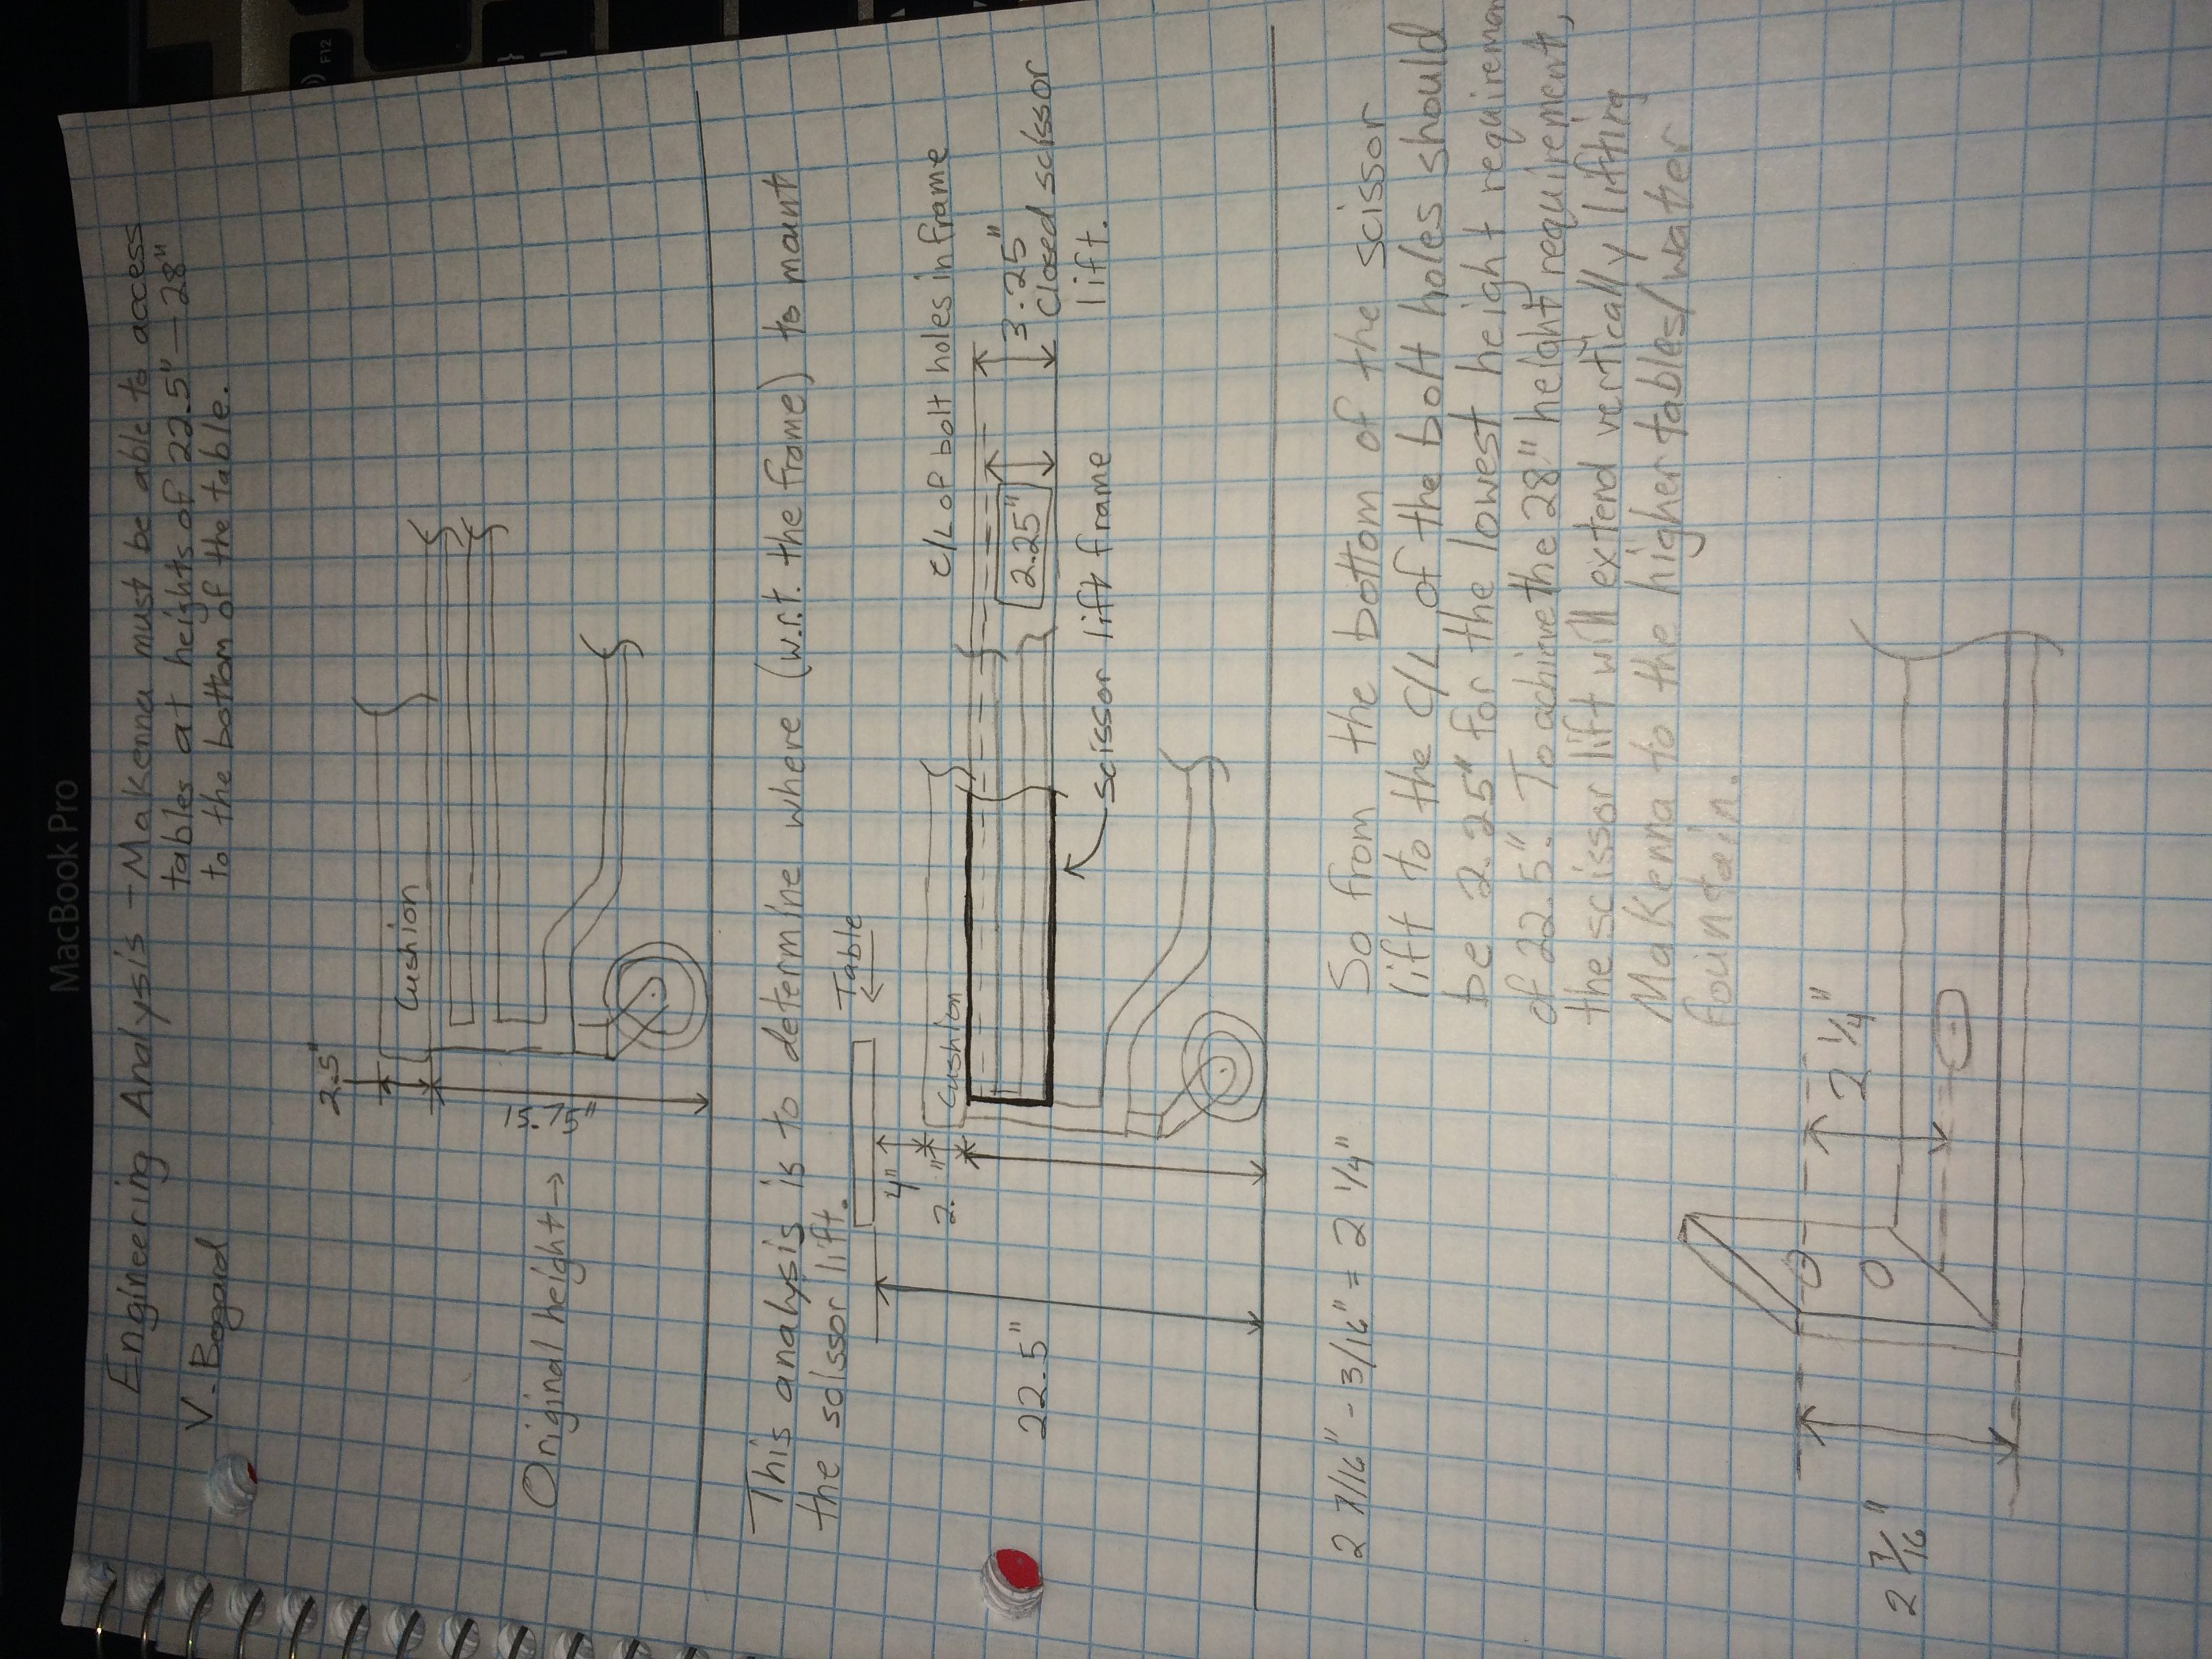 MacBook Pro
Engineering Analysis - Makenna must be able to access
tables at heights of 22.5" - 28"
V. Bogard
to the bottom of the table.
F12
2.5"
Cushion
15.75"
Original height →
This analysis is to determine where (w.r.t. the frame) to mount
the scissor lift.
Table
4"
2. "
Cushion
C/L of bolt holes in frame
22.5"
2.25"
3.25"
Closed scissor
lift.
scissor lift frame
2 7/16" - 3/16" = 2 1/4"
So from the bottom of the scissor
lift to the C/L of the bolt holes should
be 2.25" for the lowest height requiremen
of 22.5". To achieve the 28" height requirement,
the scissor lift will extend vertically lifting
Makenna to the higher tables/water
fountain.
2 1/4"
2 7/16"